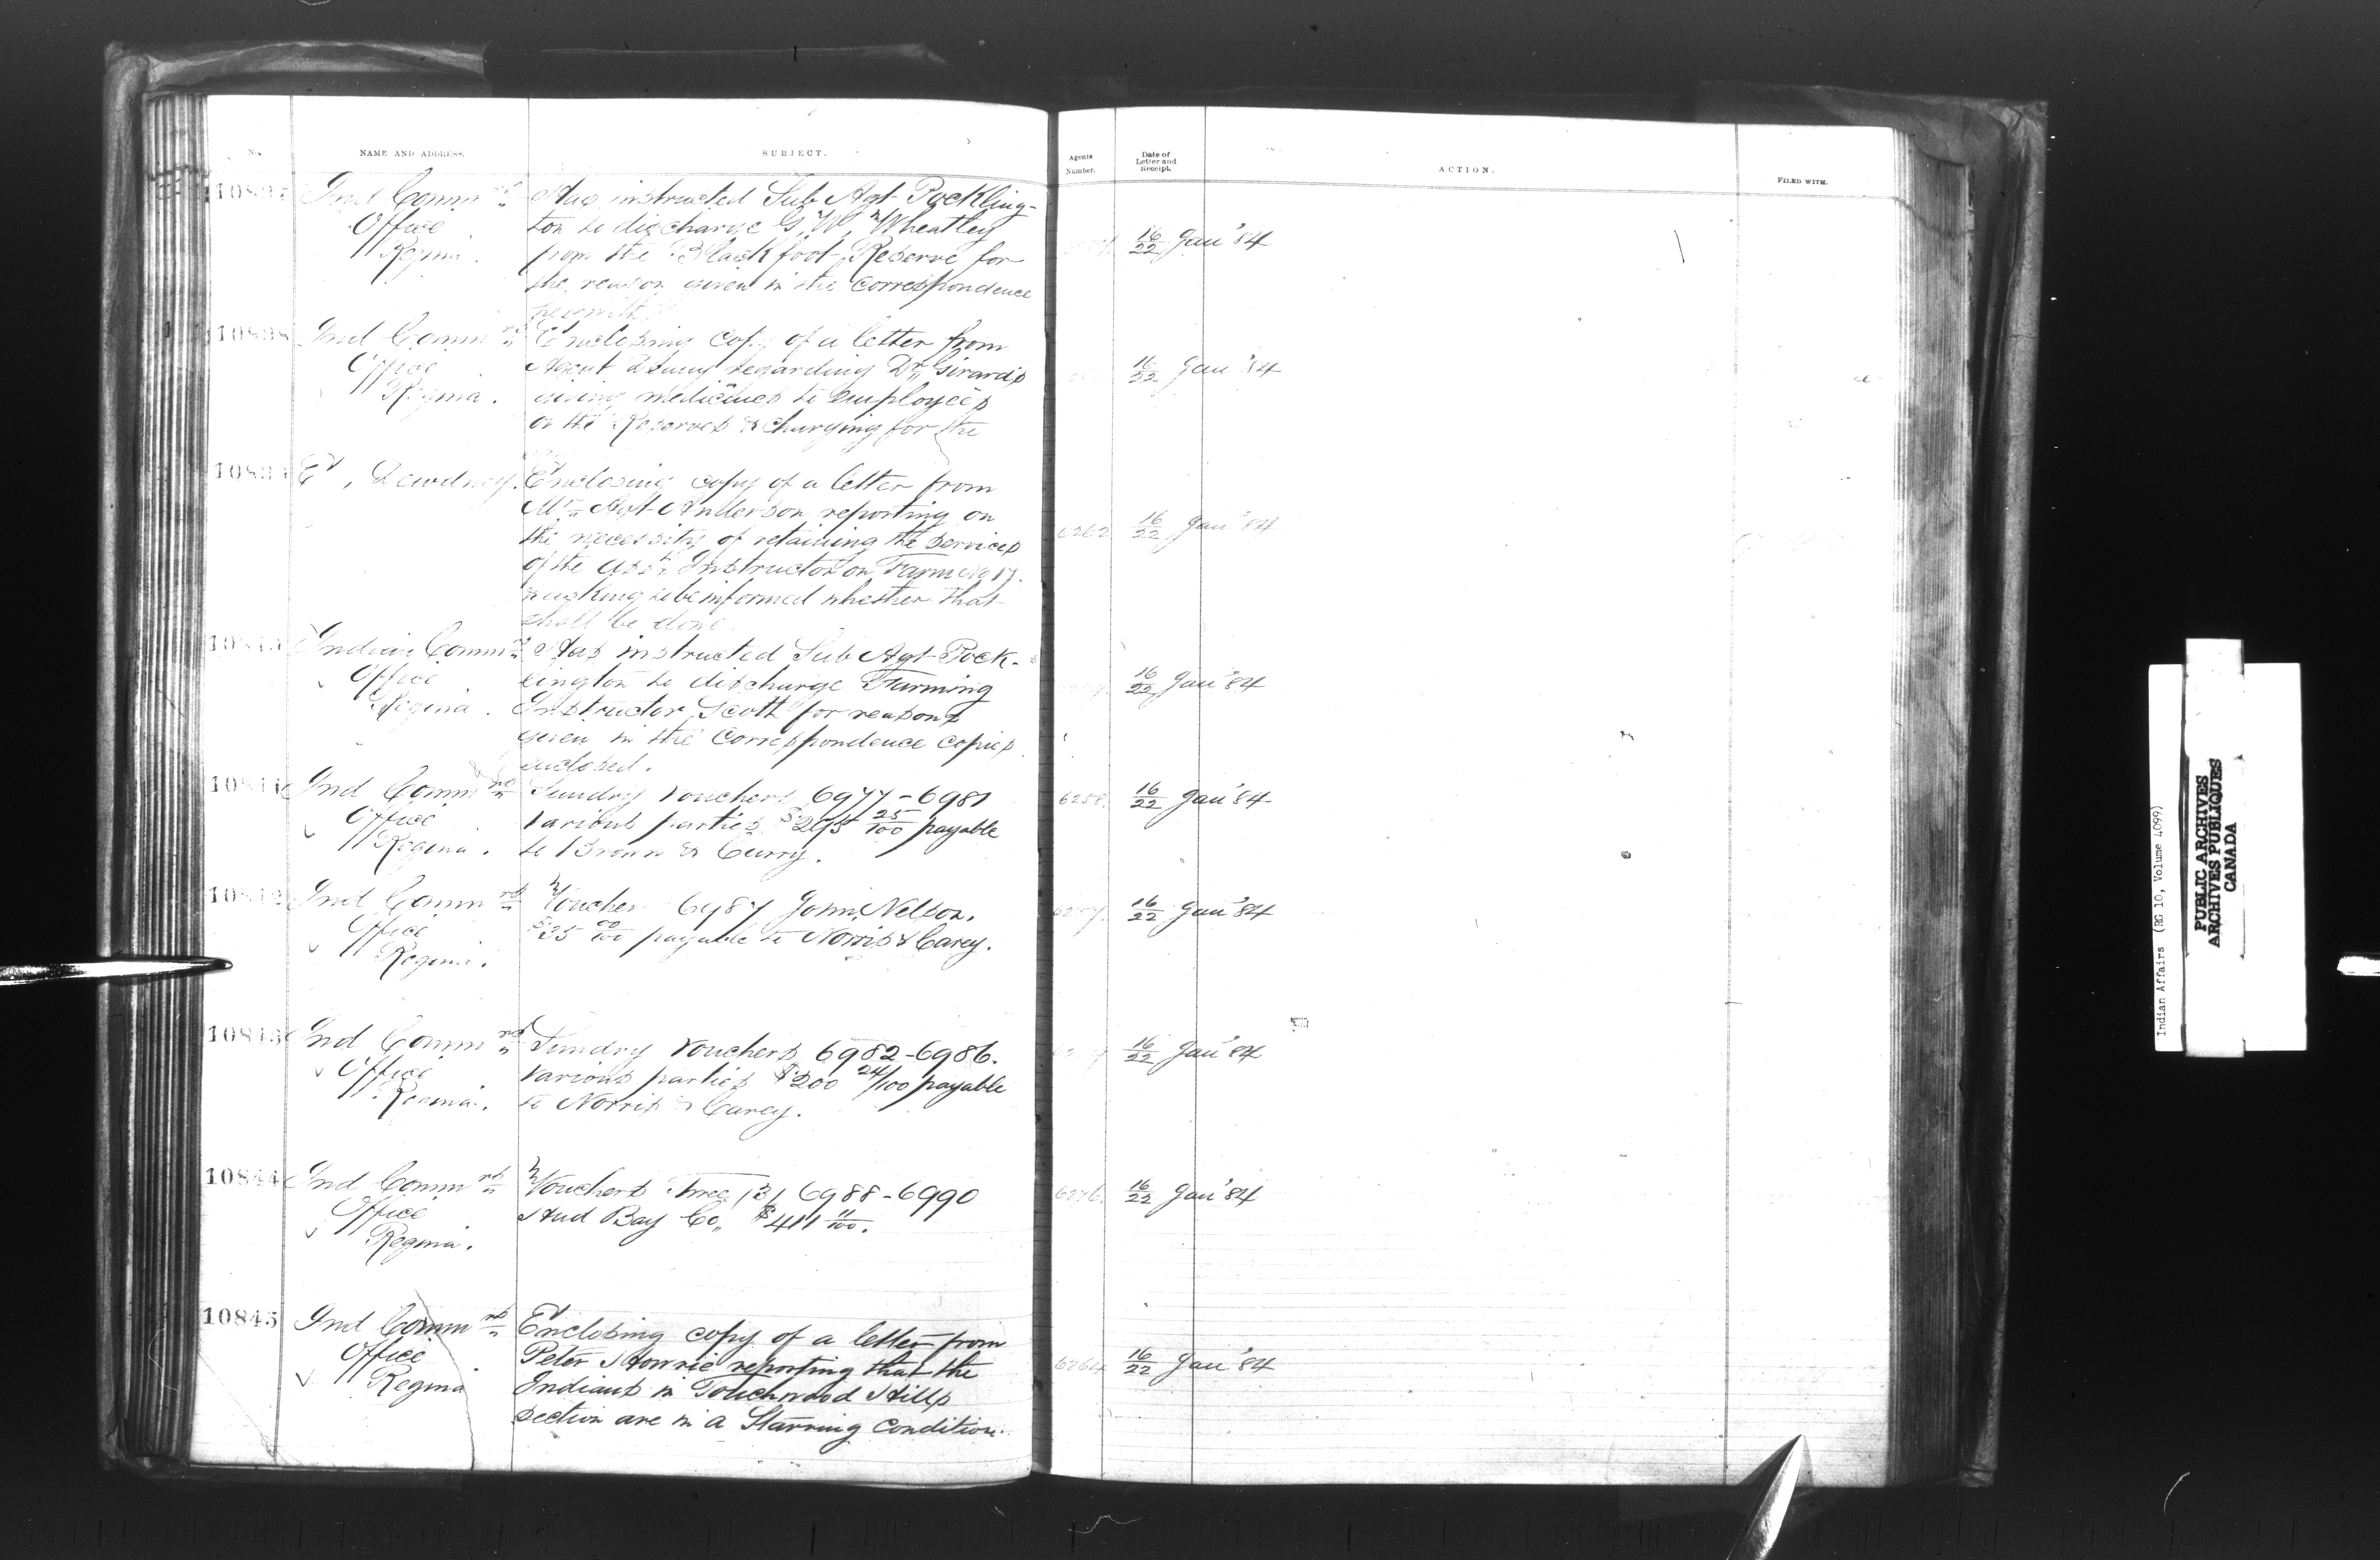 No. NAME AND ADDRESS. SUBJECT. Agents Number. Date of Letter and Receipt. ACTION. FILED WITH.
10837 Ind Commrs Has instructed Sub Agt Pockling-
Office ton to discharge G. W. Wheatley 16/22 Jan '84
Regina. from the Blackfoot Reserve for
the reason given in the correspondence
herewith.
10838 Ind Commrs Enclosing copy of a letter from
Office Agent Denny regarding Dr Girard's 16/22 Jan '84
Regina. giving medicines to employees
on the Reserves & charging for the
10839 E. Dewdney. Enclosing copy of a letter from
Mr Agt Anderson reporting on 6262 16/22 Jan '84
the necessity of retaining the services
of the Asst Instructor on Farm No 17.
& asking to be informed whether that
shall be done.
10840 Indian Commrs Has instructed Sub Agt Pock-
Office lington to discharge Farming 16/22 Jan '84
Regina. Instructor Scott for reasons
given in the correspondence copies
enclosed.
10841 Ind Commrs Sundry vouchers 6977-6981 6258 16/22 Jan '84
Office various parties $295 25/100 payable
Regina. to Brown & Curry.
10842 Ind Commrs Voucher 6987 John Nelson. 16/22 Jan '84
Office $35 00/100 payable to Norris & Carey.
Regina.
10843 Ind Commrs Sundry vouchers 6982-6986. 16/22 Jan '84
Office various parties $200 24/100 payable
Regina. to Norris & Carey.
10844 Ind Commrs Vouchers Three (3) 6988-6990 6276 16/22 Jan '84
Office Hud Bay Co, $411 11/100.
Regina.
10845 Ind Commrs Enclosing copy of a letter from
Office Peter Hourie reporting that the 6264 16/22 Jan '84
Regina Indians in Touchwood Hills
section are in a Starving condition.
Indian Affairs (RG 10, Volume 4099)
PUBLIC ARCHIVES
ARCHIVES PUBLIQUES
CANADA